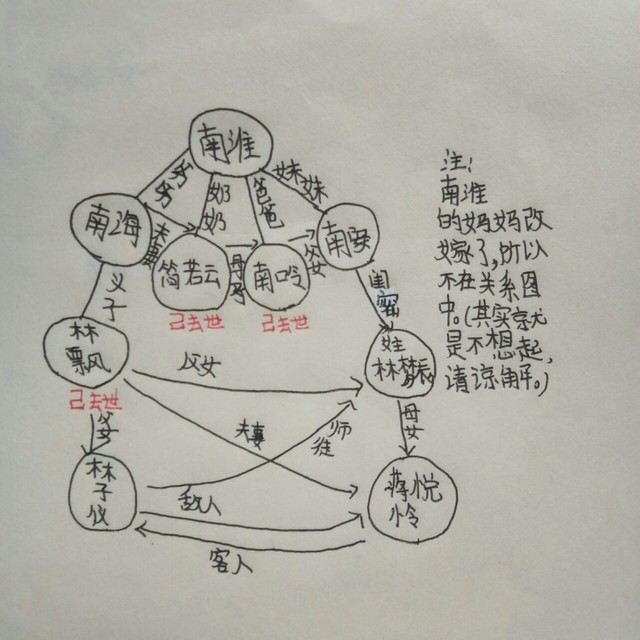 南淮
爷爷
奶奶
爸爸
妹妹
南海
夫妻
简若云
母子
南呤
父女
南婴
已去世
已去世
义子
闺密
林飘
已去世
父女
林梦辰
父女
母女
夫妻
师徒
林子仪
敌人
蒋悦怜
客人
注:
南淮
的妈妈改
嫁了,所以
不在关系图
中。(其实就
是不想起,
请谅解。)